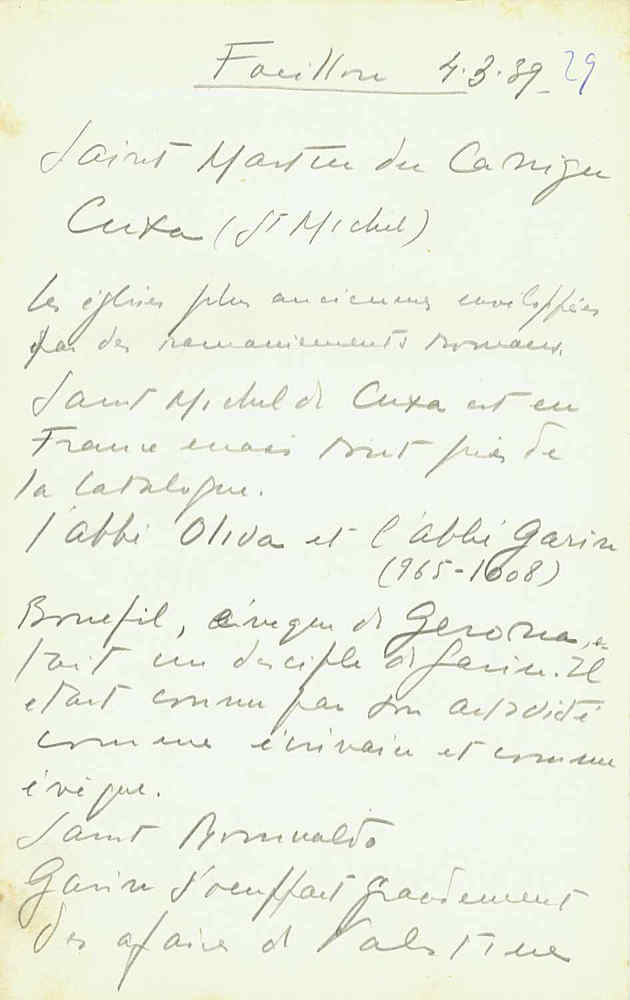 Focillon 4.3.39_ 29
Saint Martin du Canigu
Cuxa (St Michel)
Les églises plus anciennes enveloppées
par des remaniements romans.
Saint Michel de Cuxa est en
France mais tout près de
la Catalogne.
l'abbé Oliva et l'abbé Garin
(965-1008)
Bonefil, évêque de Gerona, é-
tait un disciple de Garin. Il
etait connu par son activité
comme écrivain et comme
évêque.
Saint Romualdo
Garin s'ocuppait grandement
des afaires de Palestine